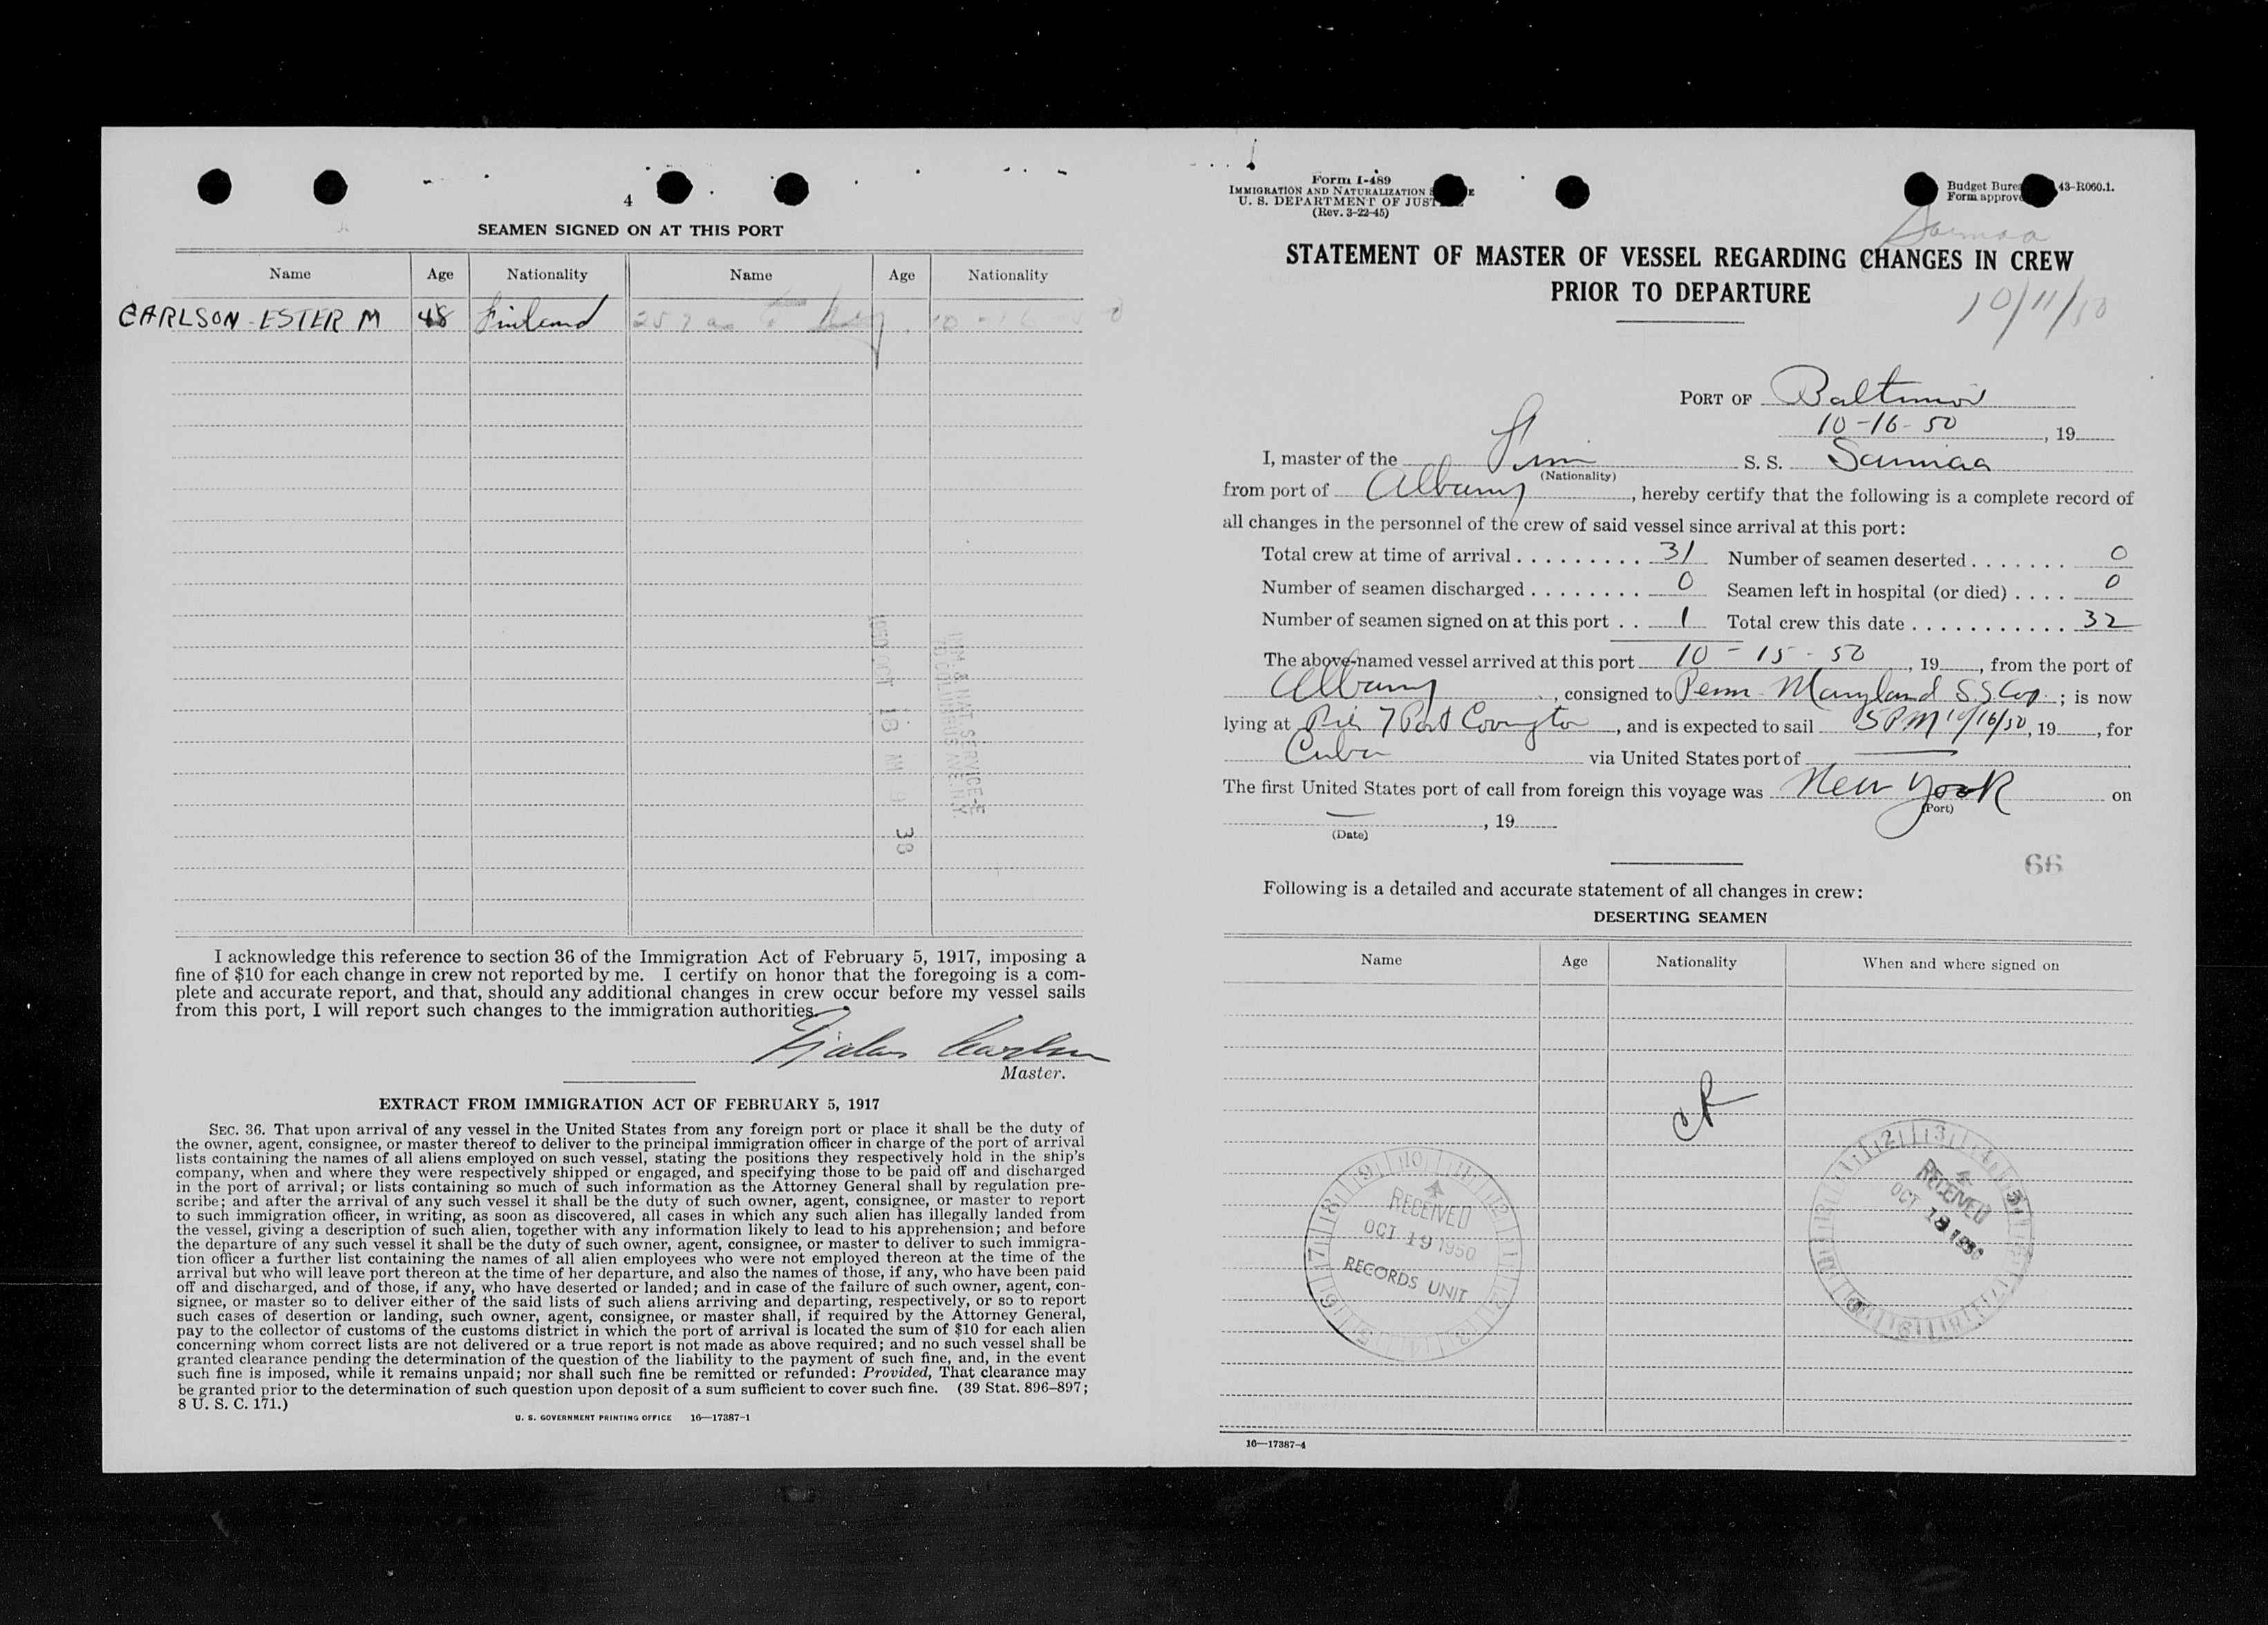 4
SEAMEN SIGNED ON AT THIS PORT
Name Age Nationality Name Age Nationality
CARLSON ESTER M 48 Finland
1950 OCT 18 AM 9 38
IMM. & NAT. SERVICE-E
70 COLUMBUS AVE. N.Y.
I acknowledge this reference to section 36 of the Immigration Act of February 5, 1917, imposing a
fine of $10 for each change in crew not reported by me. I certify on honor that the foregoing is a com-
plete and accurate report, and that, should any additional changes in crew occur before my vessel sails
from this port, I will report such changes to the immigration authorities.
Master.
EXTRACT FROM IMMIGRATION ACT OF FEBRUARY 5, 1917
SEC. 36. That upon arrival of any vessel in the United States from any foreign port or place it shall be the duty of
the owner, agent, consignee, or master thereof to deliver to the principal immigration officer in charge of the port of arrival
lists containing the names of all aliens employed on such vessel, stating the positions they respectively hold in the ship's
company, when and where they were respectively shipped or engaged, and specifying those to be paid off and discharged
in the port of arrival; or lists containing so much of such information as the Attorney General shall by regulation pre-
scribe; and after the arrival of any such vessel it shall be the duty of such owner, agent, consignee, or master to report
to such immigration officer, in writing, as soon as discovered, all cases in which any such alien has illegally landed from
the vessel, giving a description of such alien, together with any information likely to lead to his apprehension; and before
the departure of any such vessel it shall be the duty of such owner, agent, consignee, or master to deliver to such immigra-
tion officer a further list containing the names of all alien employees who were not employed thereon at the time of the
arrival but who will leave port thereon at the time of her departure, and also the names of those, if any, who have been paid
off and discharged, and of those, if any, who have deserted or landed; and in case of the failure of such owner, agent, con-
signee, or master so to deliver either of the said lists of such aliens arriving and departing, respectively, or so to report
such cases of desertion or landing, such owner, agent, consignee, or master shall, if required by the Attorney General,
pay to the collector of customs of the customs district in which the port of arrival is located the sum of $10 for each alien
concerning whom correct lists are not delivered or a true report is not made as above required; and no such vessel shall be
granted clearance pending the determination of the question of the liability to the payment of such fine, and, in the event
such fine is imposed, while it remains unpaid; nor shall such fine be remitted or refunded: Provided, That clearance may
be granted prior to the determination of such question upon deposit of a sum sufficient to cover such fine. (39 Stat. 896–897;
8 U. S. C. 171.)
U. S. GOVERNMENT PRINTING OFFICE 16—17387-1
Form I-489
IMMIGRATION AND NATURALIZATION
U. S. DEPARTMENT OF JUST
(Rev. 3-22-45)
Budget Bure 43-R060.1.
Form approve
Saimaa
STATEMENT OF MASTER OF VESSEL REGARDING CHANGES IN CREW
PRIOR TO DEPARTURE
10/11/50
PORT OF Baltimore
10-16-50, 19
I, master of the Finn S. S. Saimaa
(Nationality)
from port of Albany, hereby certify that the following is a complete record of
all changes in the personnel of the crew of said vessel since arrival at this port:
Total crew at time of arrival . . . . . . . . . 31 Number of seamen deserted . . . . . . . 0
Number of seamen discharged . . . . . . . . 0 Seamen left in hospital (or died) . . . . 0
Number of seamen signed on at this port . . 1 Total crew this date . . . . . . . . . . . . 32
The above-named vessel arrived at this port 10-15-50, 19, from the port of
Albany, consigned to Penn-Maryland S.S. Corp; is now
lying at Pier 7 Port Covington, and is expected to sail 5 PM 10/16/50, 19, for
Cuba via United States port of —
The first United States port of call from foreign this voyage was New York on
(Port)
—, 19
(Date)
66
Following is a detailed and accurate statement of all changes in crew:
DESERTING SEAMEN
Name Age Nationality When and where signed on
RECEIVED
OCT 19 1950
RECORDS UNIT
RECEIVED
OCT 18 1950
16—17387-4